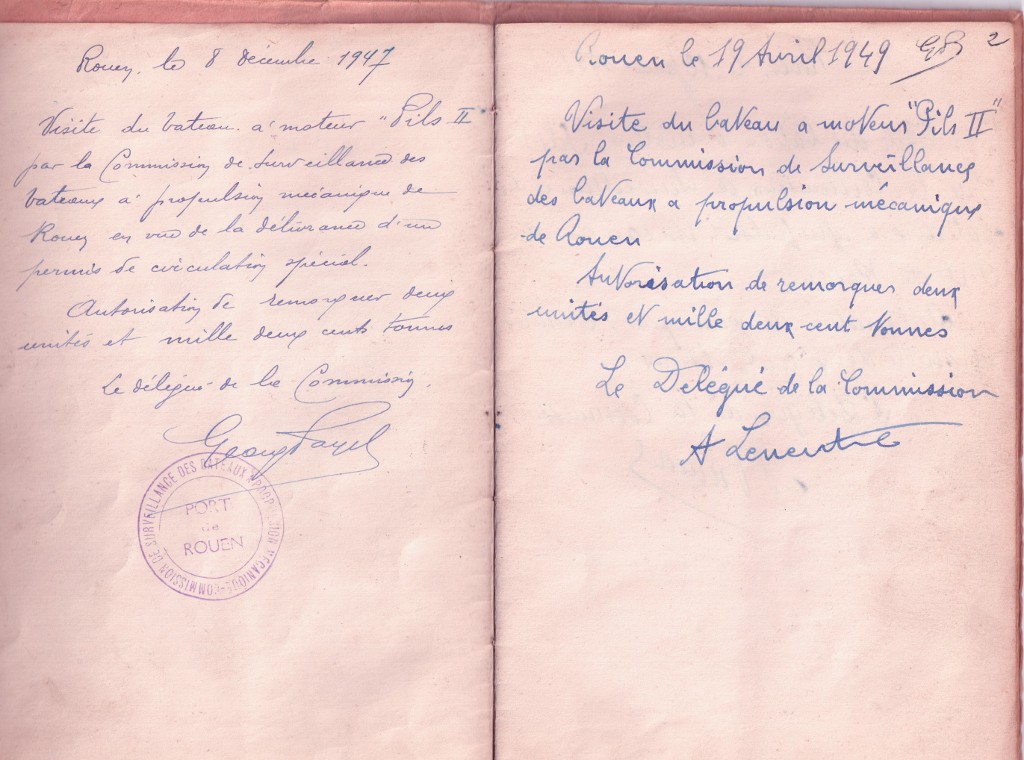 Rouen, le 8 décembre 1947
Visite du bateau à moteur "Pils II"
par la Commission de Surveillance des
bateaux à propulsion mécanique de
Rouen en vue de la délivrance d'un
permis de circulation spécial.
Autorisation de remorquer deux
unités et mille deux cents tonnes
Le délégué de la Commission.
COMMISSION DE SURVEILLANCE DES BATEAUX A PROPULSION MECANIQUE
PORT
de
ROUEN
2
Rouen le 19 Avril 1949
Visite du bateau a moteur "Pils II"
par la Commission de Surveillance
des bateaux a propulsion mécanique
de Rouen
Autorisation de remorquer deux
unités et mille deux cent tonnes
Le Délégué de la Commission